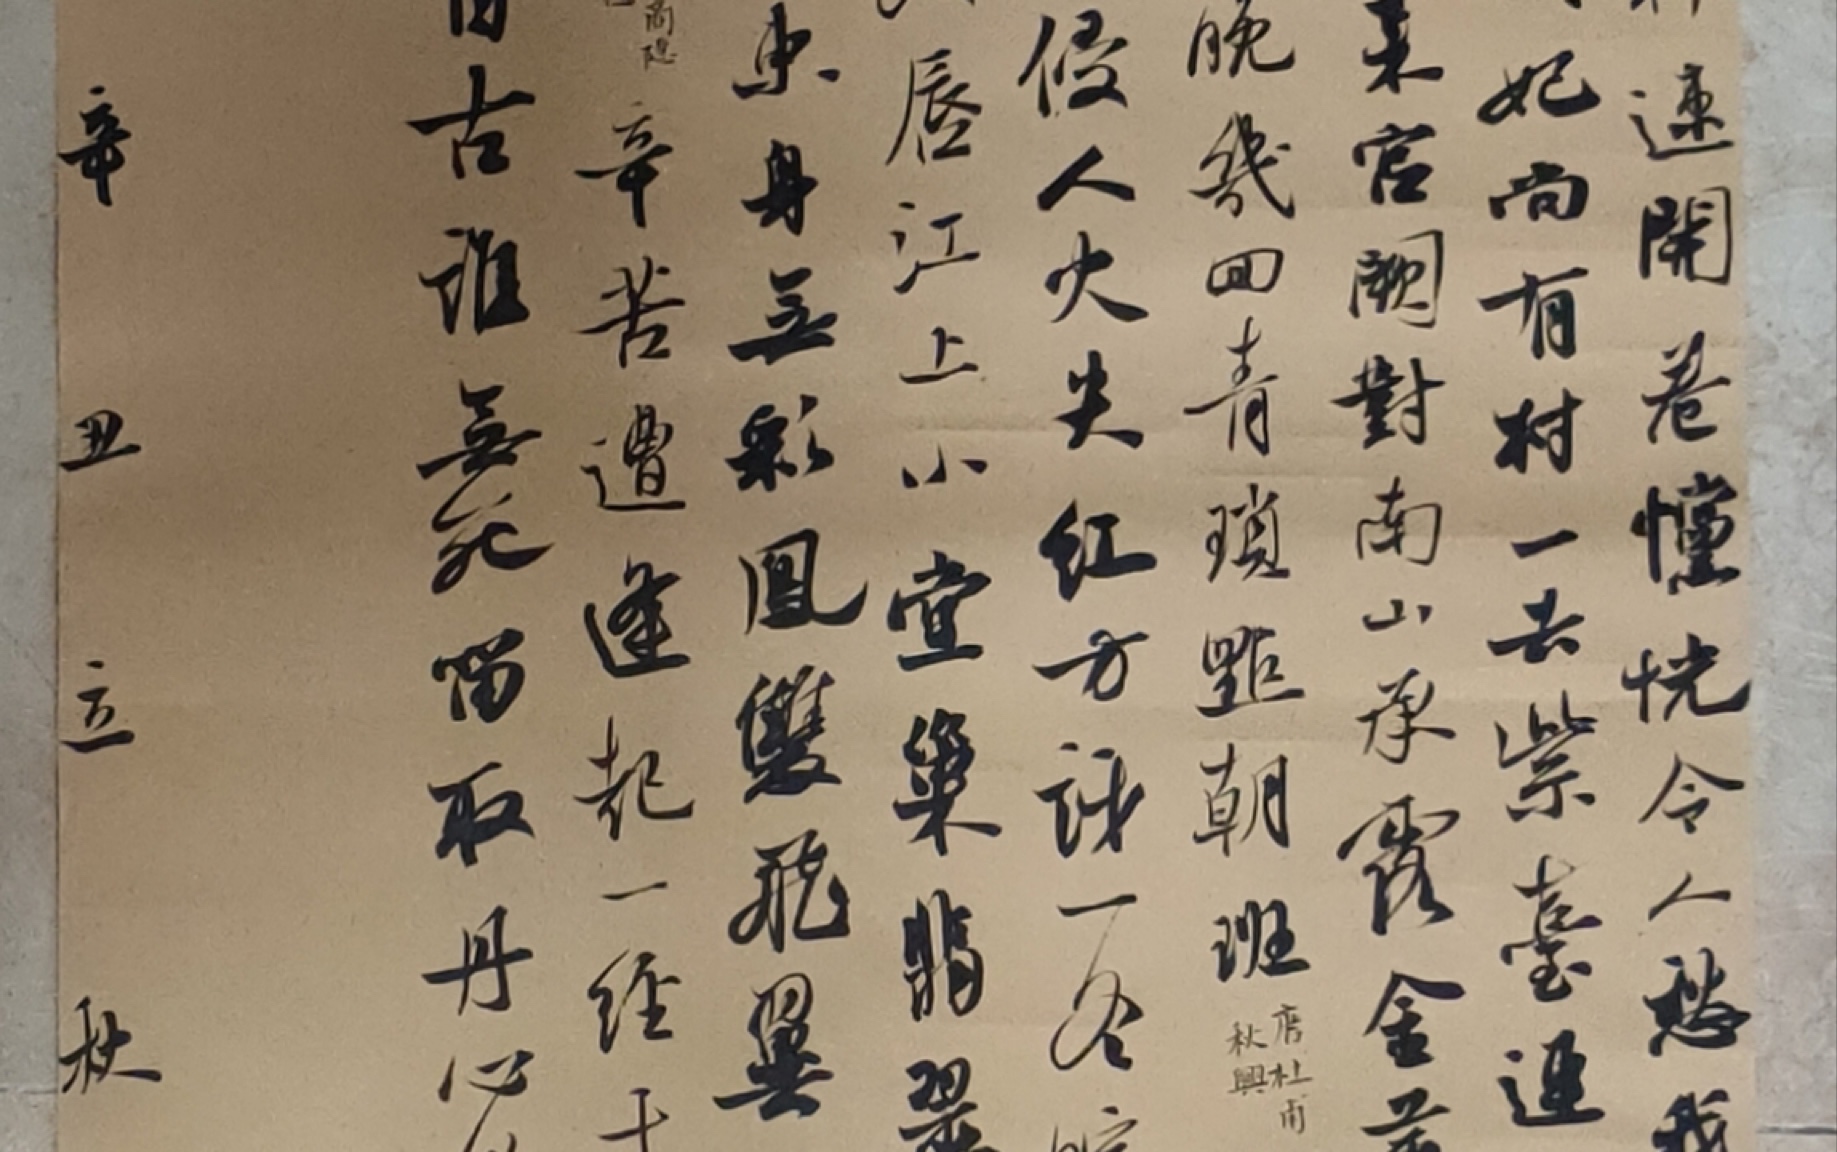 速開卷戃恍令人愁我
妃尚有村一去紫臺連
来宮闕對南山承露金莖
晚幾回青瑣點朝班
唐杜甫
秋興
侵人火 紅方訝一冬暄
脣江上小堂巢翡翠
東身無彩鳳雙飛翼
商隱
辛苦遭逢起一經干
自古誰無死留取丹心
辛丑立秋